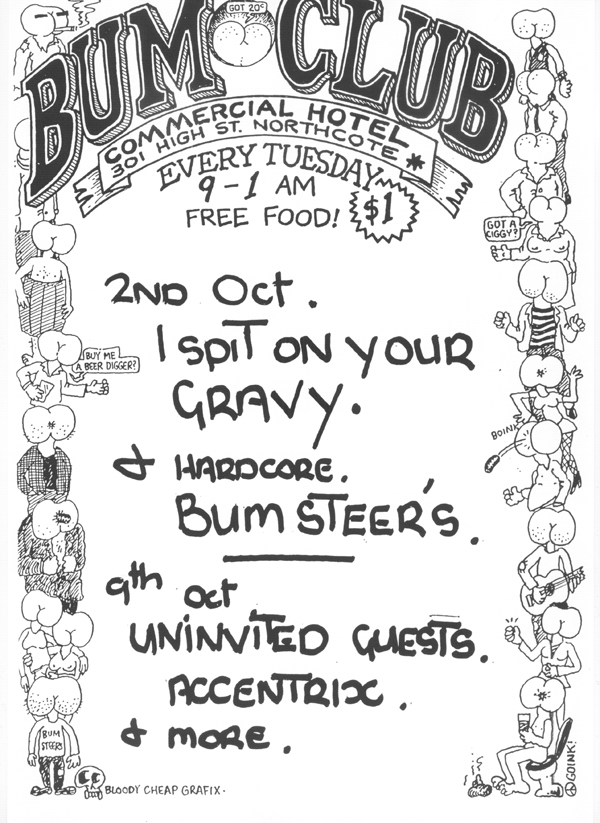 GOT 20¢
BUM CLUB
COMMERCIAL HOTEL
301 HIGH ST. NORTHCOTE *
EVERY TUESDAY
9-1 AM
FREE FOOD!
$1
GOT A
CIGGY?
2ND Oct.
I SPIT ON YOUR
GRAVY.
& HARDCORE.
BUM STEER'S.
BUY ME
A BEER DIGGER?
BOINK
9th Oct
UNINVITED GUESTS.
ACCENTRIX.
& MORE.
BUM
STEERS
BLOODY CHEAP GRAFIX.
GOINK!